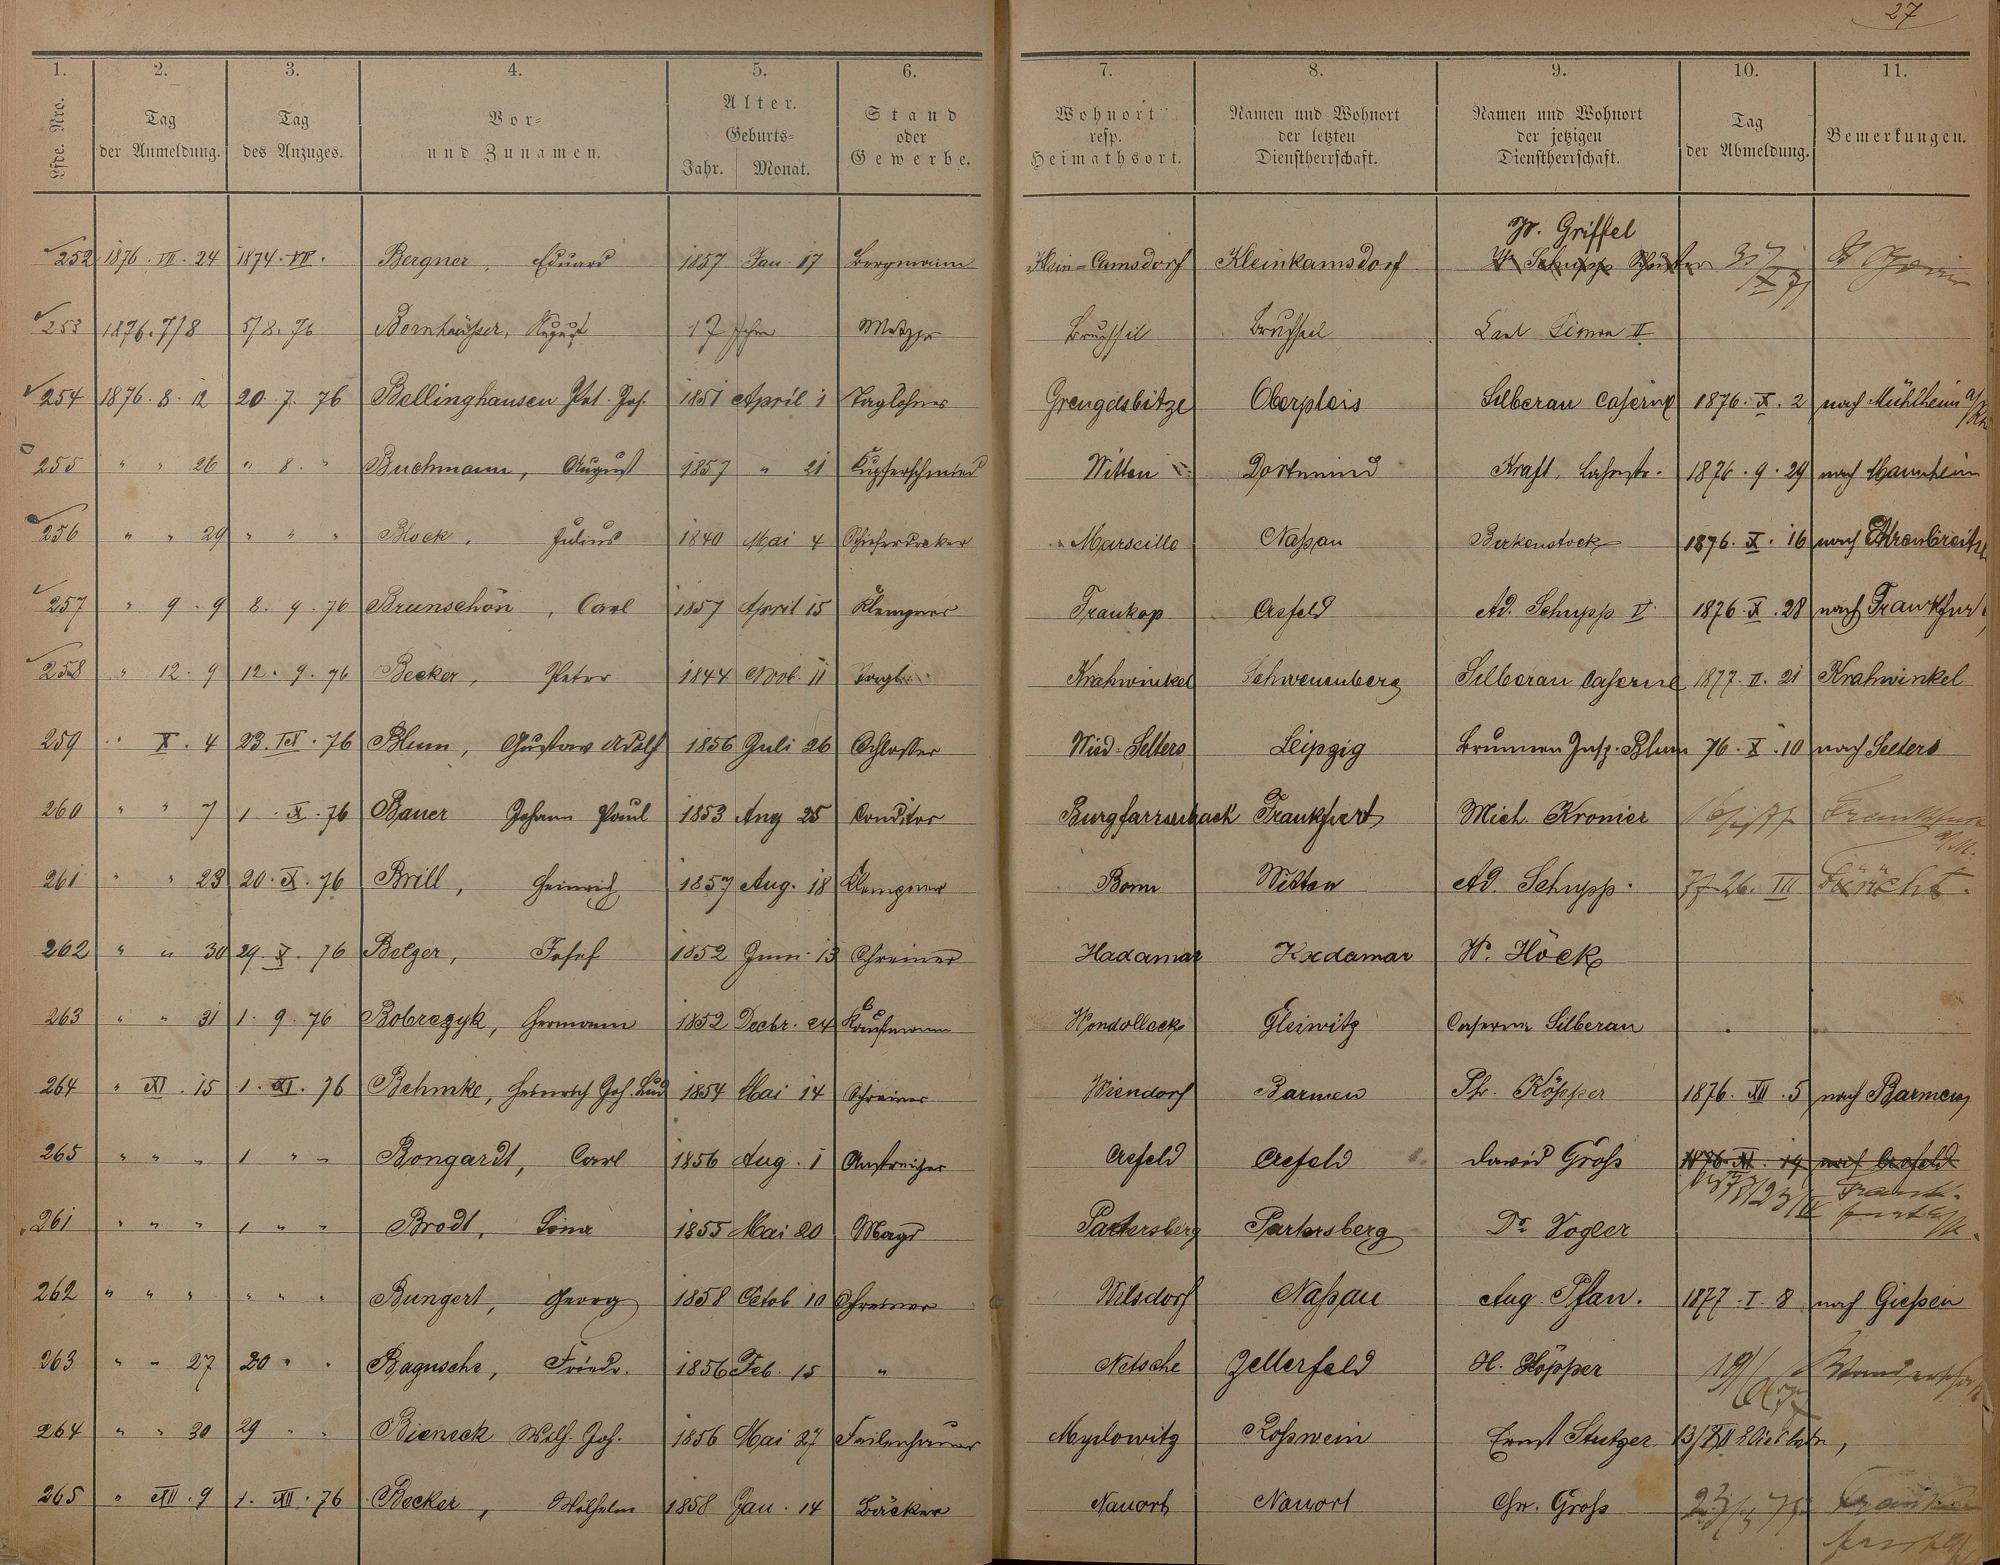 27
1. 2. 3. 4. 5. 6. 7. 8. 9. 10. 11.
Lfde. Nro. Tag der Anmeldung. Tag des Anzuges. Vor- und Zunamen. Alter. Geburts- Jahr. Monat. Stand oder Gewerbe. Wohnort resp. Heimathsort. Namen und Wohnort der letzten Dienstherrschaft. Namen und Wohnort der jetzigen Dienstherrschaft. Tag der Abmeldung. Bemerkungen.
W. Griffel
252 1876. VII. 24 1874. VII. Bergner, Eduard 1857 Jan. 17 Bergmann Klein-Camsdorf Kleinkamsdorf
253 1876. 7/8 5/8. 76 Bornhäußer, August 17 Jahre Metzger Bruchsal Bruchsal Carl Simon II
254 1876. 8. 12 20. 7. 76 Bellinghausen Pet. Jos. 1851 April 1 Taglöhner Grengelsbitze Oberpleis Silberau Caserne 1876. X. 2 nach Mühlheim a/Rh
255 " " 26 " 8. " Buchmann, August 1857 " 21 Kupferschmied Witten Dortmund Kraft, Lahnstr. 1876. 9. 29 nach Mannheim
256 " " 29 " " " Block, Julius 1840 Mai 4 Schieferdecker Marseille Naßau Birkenstock 1876. X. 16 nach Ehrenbreitst
257 " 9. 9 8. 9. 76 Brunschön, Carl 1857 April 15 Klempner Frankop Crefeld Ad. Schupp II 1876. X. 28 nach Frankfurt
258 " 12. 9 12. 9. 76 Becker, Peter 1844 Nov. 11 Tagl. Krahwinkel Schwenenberg Silberau Caserne 1877. II. 21 Krahwinkel
259 " X. 4 23. IX. 76 Blum, Gustav Adolf 1856 Juli 26 Schlosser Nied-Selters Leipzig Brunnen Insp. Blum 76. X. 10 nach Selters
260 " " 7 1. X. 76 Bauer Johann Paul 1853 Aug 25 Conditor Burgfarrnbach Frankfurt Mich. Kronier Frankfurt a/M.
261 " " 23 20. X. 76 Brill, Heinrich 1857 Aug. 18 Klempner Bonn Witten Ad. Schupp. 77 26. III
262 " " 30 29. X. 76 Belger, Josef 1852 Juni 13 Schreiner Hadamar Hadamar W. Höck
263 " " 31 1. 9. 76 Bobrezyk, Hermann 1852 Decbr. 24 Kaufmann Gleiwitz Caserne Silberau
264 " XI. 15 1. XI. 76 Behmke, Heinrich Joh. Lud 1854 Mai 14 Schreiner Wiendorf Barmen Ph. Köpper 1876. XII. 5 nach Barmen
265 " " " 1 " " Bongardt, Carl 1856 Aug. 1 Anstreicher Crefeld Crefeld David Groß 1876. XI. 19 nach Crefeld
Frankfurt a/M.
261 " " " 1 " " Brodt, Lina 1855 Mai 20 Magd Partersberg Partersberg Dr Vogler
262 " " " " " " Bungert, Georg 1858 Octob 10 Schreiner Wilsdorf Naßau Aug. Pfau. 1877. I. 8 nach Gießen
263 " " 27 20 " " Bagusche, Friedr. 1856 Feb. 15 " Netsche Zellerfeld H. Höpper Wanderschaft
264 " " 30 29 " " Bieneck Wilh. Joh. 1856 Mai 27 Feilenhauer Myslowitz Roßwein Ernst Stutzer 13/XII
265 " XII. 9 1. XII. 76 Becker, Wilhelm 1858 Jan. 14 Bäcker Nauort Nauort Chr. Groß Frankfurt